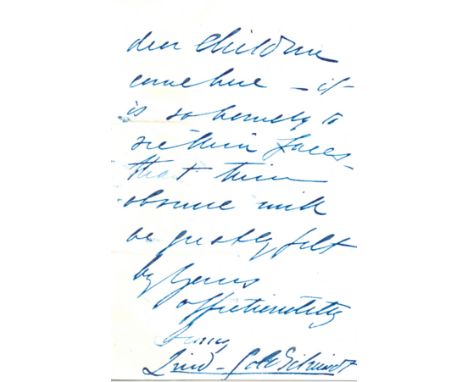 dear Children
come here – it
is so homely to
see their faces –
that their
absence will
be greatly felt
by yours
affectionately
Jenny
Lind – Goldschmidt